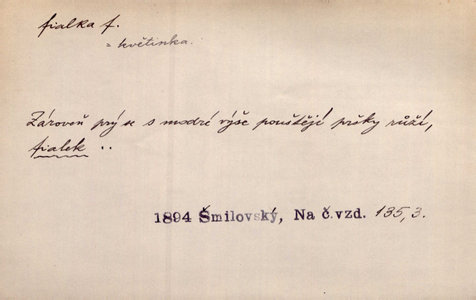 fialka f.
= květinka.
Zároveň prý se s modré výše pouštějí pršky růží,
fialek ..
1894 Šmilovský, Na č.vzd. 135,3.